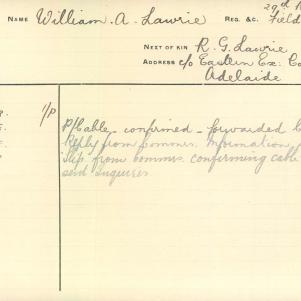 NAME William. A. Lawrie REG. &C. 29th
Field
NEXT OF KIN R. G. Lawrie
ADDRESS c/o Eastern Ex. Co
Adelaide
1/P P/Cable confirmed - forwarded
Reply from Commrs. Information
slip from Commrs. confirming cable
send Inquiries